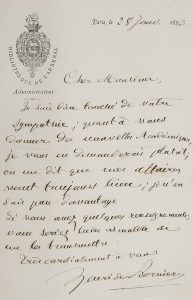 BIBLIOTHÈQUE DE L'ARSENAL
Administrateur
Paris, le 28
Cher Monsieur,
Je suis bien touché de votre
sympathie ; quant à vous
donner des nouvelles Académiques,
je vous en demanderais plutôt,
on me dit que mes affaires
vont toujours bien ; je n'en
sais pas davantage
Si vous avez quelques renseignements,
vous serez bien aimable de
me les transmettre.
Très cordialement à vous
Henri de Bornier